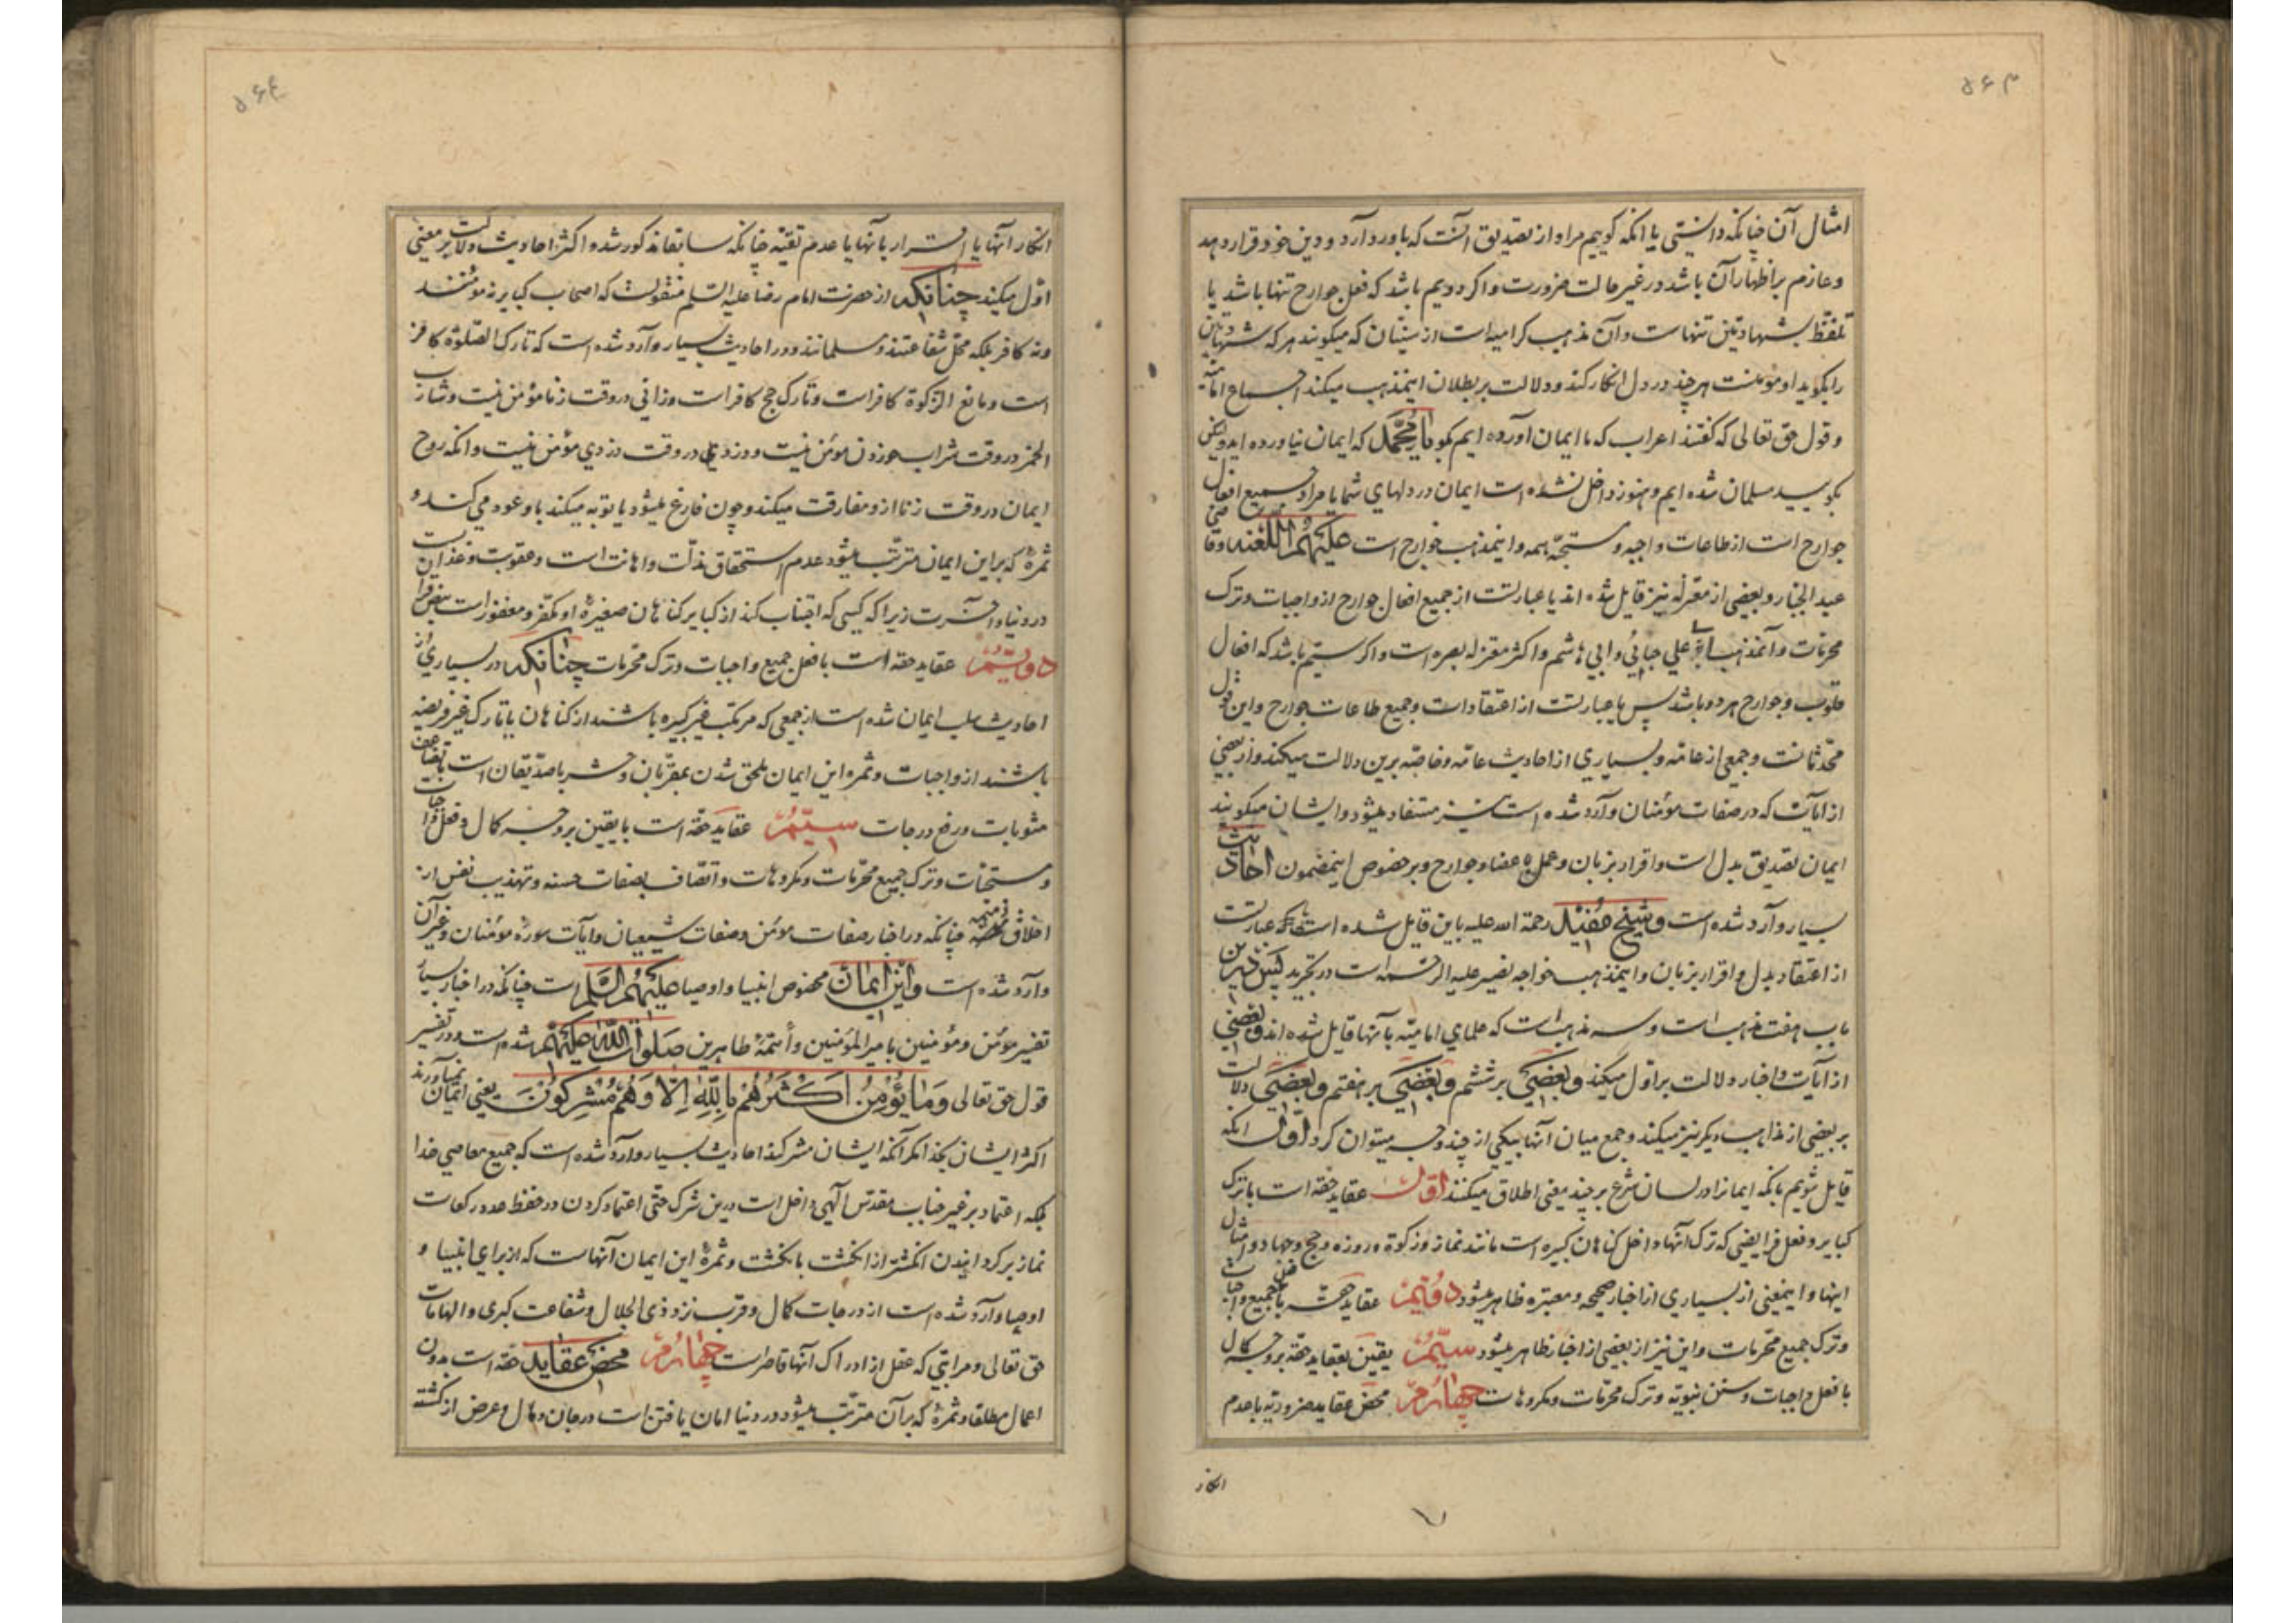 ۵۶۳
امثال آن چنانکه دانستی یا انکه کوییم مراد از تصدیق آنست که باور دارد و دین خود قرار دهد
و عازم بر اظهار آن باشد در غیر حالت ضرورت و اکر دویم باشد که فعل جوارح تنها باشد یا
تلفّظ بشهادتین تنهاست و آن مذهب کرامیه است از سنیّان که میکویند هر که شهادتین
را بکوید او مؤمنست هر چند در دل انکار کند و دلالت بر بطلان اینمذهب میکند اجماع امامیّه
و قول حق تعالی که کفتند اعراب که ما ایمان آورده ایم بکو یا محمّد که ایمان نیاورده اید ولیکن
بکویید مسلمان شده ایم و هنوز داخل نشده است ایمان در دلهای شما یا مراد جمیع افعال
جوارح است از طاعات واجبه و مستحبّه همه و اینمذهب خوارج است علیهم اللعنه و قاضی
عبد الجبّار و بعضی از معتزله نیز قایل شده اند یا عبارتست از جمیع افعال جوارح از واجبات و ترک
محرّمات و آنمذهب ابو علی جبائی و ابی هاشم و اکثر معتزله بصره است و اکر سیّم باشد که افعال
قلوب و جوارح هر دو باشد پس یا عبارتست از اعتقادات و جمیع طاعات جوارح و این قول
محدّثانست و جمعی از عامّه و بسیاری از احادیث عامّه و خاصّه برین دلالت میکند و از بعضی
از آیات که در صفات مؤمنان وارد شده است نیز مستفاد میشود و ایشان میکویند
ایمان تصدیق بدل است و اقرار بزبان و عمل باعضا و جوارح و بر خصوص اینمضمون احادیث
بسیار وارد شده است و شیخ مفید رحمة الله علیه باین قایل شده است یا عبارتست
از اعتقاد بدل و اقرار بزبان و اینمذهب خواجه نصیر علیه الرحمه است در تجرید پس درین
باب هفت مذهب است و سه مذهب است که علمای امامیّه بآنها قایل شده اند و بعضی
از آیات و اخبار دلالت بر اول میکند و بعضی بر ششم و بعضی بر هفتم و بعضی دلالت
بر بعضی از مذاهب دیکر نیز میکند و جمع میان آنها بیکی از چند وجه میتوان کرد اوّل انکه
قایل شویم بانکه ایمانرا در لسان شرع بر چند معنی اطلاق میکنند اوّل عقاید حقّه است با ترک
کبایر و فعل فرایضی که ترک آنها داخل کناهان کبیره است مانند نماز و زکوة و روزه و حج و جهاد و امثال
اینها و اینمعنی از بسیاری از اخبار صحیحه و معتبره ظاهر میشود دویّم عقاید حقّه با فعل جمیع واجبات
و ترک جمیع محرّمات و این نیز از بعضی از اخبار ظاهر میشود سیّم یقین بعقاید حقّه بر وجه کمال
با فعل واجبات و سنن نبویّه و ترک محرّمات و مکروهات چهارم محض عقاید ضروریّه با عدم
انکار
۵۶۴
انکار آنها یا اقرار بآنها با عدم تقیّه چنانکه سابقا مذکور شد و اکثر احادیث دلالت بر معنی
اوّل میکند چنانکه از حضرت امام رضا علیه السّلم منقولست که اصحاب کبایر نه مؤمنند
و نه کافر بلکه محلّ شفاعتند و مسلمانند و در احادیث بسیار وارد شده است که تارک الصّلوة کافر
است و مانع الزّکوة کافر است و تارک حج کافر است و زانی در وقت زنا مؤمن نیست و شارب
الخمر در وقت شراب خوردن مؤمن نیست و دزد در وقت دزدی مؤمن نیست و انکه روح
ایمان در وقت زنا از و مفارقت میکند و چون فارغ میشود یا توبه میکند باو عود می کند و
ثمرهٔ که بر این ایمان مترتّب میشود عدم استحقاق مذلّت و اهانت است و عقوبت و عذاب
در دنیا و آخرت زیرا که کسی که اجتناب کند از کبایر کناهان صغیرهٔ او مکفّر و مغفور است بنصّ قرآن
دویّم عقاید حقه است با فعل جمیع واجبات و ترک محرّمات چنانکه در بسیاری از
احادیث سلب ایمان شده است از جمعی که مرتکب غیر کبیره باشند از کناهان یا تارک غیر فریضه
باشند از واجبات و ثمره این ایمان ملحق شدن بمقرّبان و حشر با صدّیقان است با تضاعف
مثوبات و رفع درجات سیّم عقاید حقّه است با یقین بر وجه کمال و فعل واجبات
و مستحبّات و ترک جمیع محرّمات و مکروهات و اتّصاف بصفات حسنه و تهذیب نفس از
اخلاق ذمیمه چنانکه در اخبار صفات مؤمن و صفات شیعیان و آیات سورهٔ مؤمنان و غیر آن
وارد شده است و این ایمان مخصوص انبیا و اوصیا علیهم السّلم است چنانکه در اخبار بسیار
تفسیر مؤمن و مؤمنین بامیر المؤمنین و أئمّهٔ طاهرین صلوات اللّه علیهم شده است و در تفسیر
قول حق تعالی وَمَا يُؤْمِنُ اَكْثَرُهُمْ بِاللّٰهِ اِلّا وَهُمْ مُشْرِكُونَ یعنی ایمان نمیآورند
اکثر ایشان بخدا مکر آنکه ایشان مشرکند احادیث بسیار وارد شده است که جمیع معاصی خدا
بلکه اعتماد بر غیر جناب مقدّس الهی داخل است درین شرک حتّی اعتماد کردن در حفظ عدد رکعات
نماز بر کردانیدن انکشتر از انکشت بانکشت و ثمرهٔ این ایمان آنهاست که از برای انبیا و
اوصیا وارد شده است از درجات کمال و قرب نزد ذی الجلال و شفاعت کبری و الهامات
حق تعالی و مراتبی که عقل از ادراک آنها قاصر است چهارم محض عقاید حقه است بدون
اعمال مطلقا و ثمرهٔ که بر آن مترتّب میشود در دنیا امان یافتن است در جان و مال و عرض از کشته